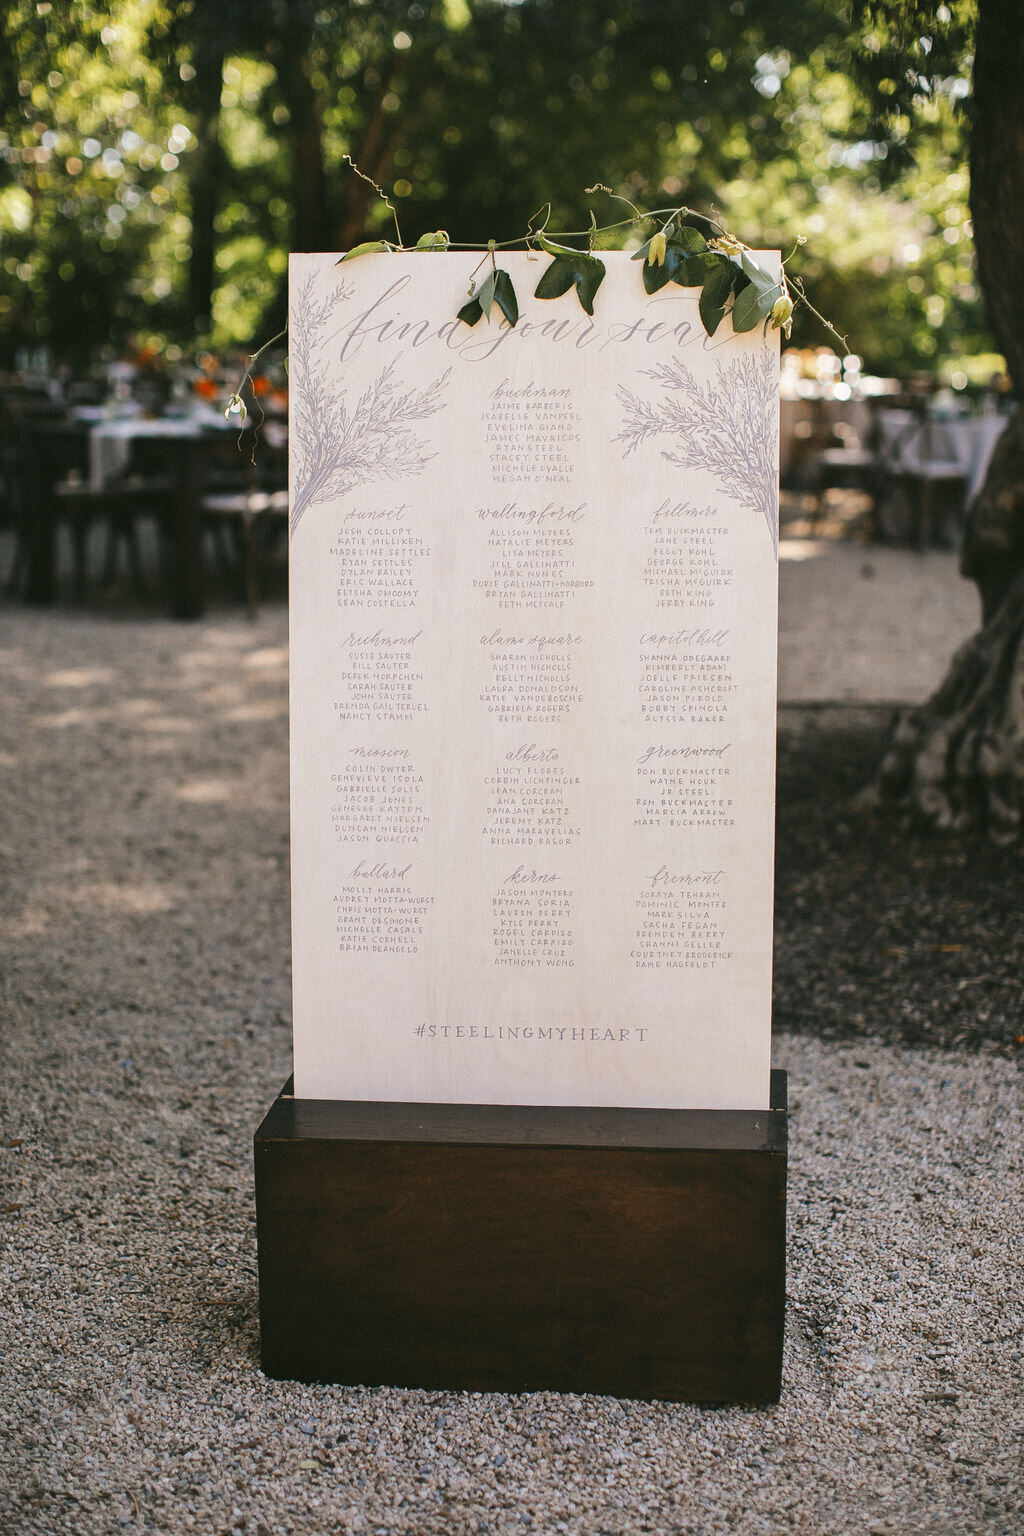 find your seat
buckman
JAIME BARBERIS
ISABELLE VANPEEL
EVELINA GIANG
JAMES MAVRICOS
RYAN STEEL
STACEY STEEL
MICHELE OVALLE
MEGAN O'NEAL
sunset
JOSH COLLOPY
KATIE MILLIKEN
MADELINE SETTLES
RYAN SETTLES
DYLAN BAILEY
ERIC WALLACE
ELYSHA OMOOMY
SEAN COSTELLA
wallingford
ALLISON MEYERS
NATALIE MEYERS
LISA MEYERS
JILL GALLINATTI
MARK NUNES
DORIE GALLINATTI-HARBORD
BRYAN GALLINATTI
BETH METCALF
fillmore
TOM BUCKMASTER
JANE STEEL
PEGGY KOHL
GEORGE KOHL
MICHAEL McGUIRK
TRISHA McGUIRK
BETH KING
JERRY KING
richmond
SUSIE SAUTER
BILL SAUTER
DEREK NORPCHEN
SARAH SAUTER
JOHN SAUTER
BRENDA GAIL TERUEL
NANCY STAMM
alamo square
SHARON NICHOLLS
AUSTIN NICHOLLS
KELLY NICHOLLS
LAURA DONALDSON
KATIE VANDEBOSCHE
GABRIELA ROGERS
BETH ROGERS
capitol hill
SHANNA ODEGAARD
KIMBERLY ADAM
JOELLE FRIESEN
CAROLINE ASHCROFT
JASON PIROLO
BOBBY SPINOLA
ALYSSA BAKER
mission
COLIN DWYER
GENEVIEVE ISOLA
GABRIELLE SOLIS
JACOB JONES
GENESEE KAYTON
MARGARET NIELSEN
DUNCAN NIELSEN
JASON QUACCIA
alberta
LUCY FLORES
CORBIN LICHTINGER
SEAN CORCRAN
ANA CORCRAN
DANAJANE KATZ
JEREMY KATZ
ANNA MARAVELIAS
RICHARD RASOR
greenwood
DON BUCKMASTER
WAYNE HOUK
JR STEEL
RON BUCKMASTER
MARCIA ARROW
MARY BUCKMASTER
ballard
MOLLY HARRIS
AUDREY MOTTA-WURST
CHRIS MOTTA-WURST
GRANT DESIMONE
MICHELLE CASALE
KATIE CORNELL
BRIAN DEANGELO
kerns
JASON MONTERO
BRYANA SORIA
LAUREN PERRY
KYLE PERRY
ROGEL CARPIZO
EMILY CARPIZO
JANELLE CRUZ
ANTHONY WONG
fremont
SORAYA TEHRAN
DOMINIC MONTEZ
MARK SILVA
SASHA FEGAN
BRENDEN BERRY
SHANNI GELLER
COURTNEY BRODERICK
DANE HAGFELDT
#STEELINGMYHEART